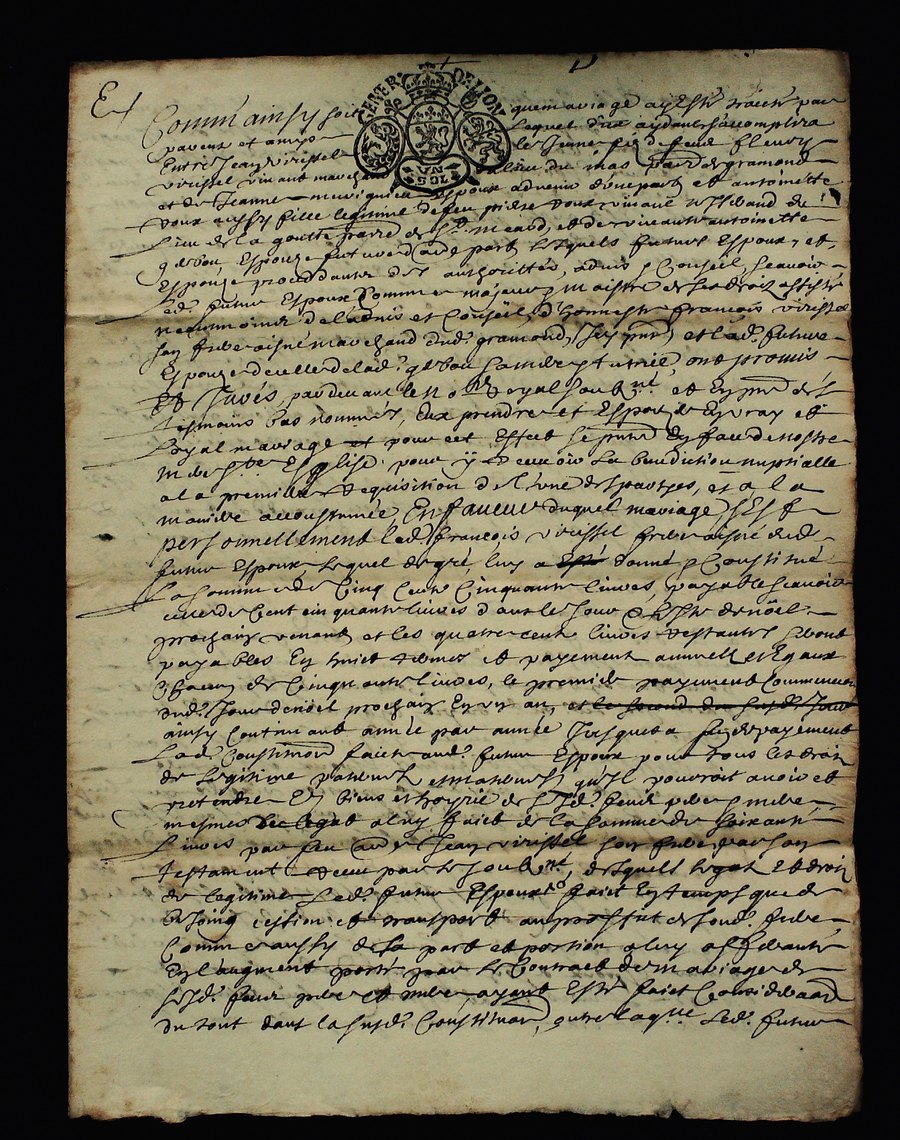 GENER. DE LION
VN SOL
Comm'ainsy soit que mariage ay esté traicté par
parens et amys lequel Dieu aydant s'accomplira
Entre Jean virissel le Jeune fils de feu fleury
virissel vivant march du lieu du mas par de gramond
et de Jeanne espoux advenir d'une part et antoinette
Roux aussy fille legitime de feu pierre Roux vivant du
Lieu de la goutte parre de St. meard, et de vivante antoinette
Espouze future d'autre part Lesquels futurs Espoux, et
Espouze procedantz des authorittés, advis & Conseil scavoir
Led. futur Espoux Comme majeur & maistre de ses droits assisté
neanmoings de l'advis et Conseil, d'honneste francois virissel
son frere aisné marchand dud. gramond, Icy pnt, et lad. future
Espouze de celle de lad. sa mere ont promis
Et Jurés, pardevant le nore Royal soubné et En pnce des
tesmoins bas nommés, Eux prendre et Espouzer En vray et
Loyal mariage et pour cet Effect se pnter En face de nostre
mere Ste Esglise pour y recevoir La benediction nuptialle
a la premiere Requisition de l'une des partyes, et a la
maniere accoustumée, En faveur duquel mariage s'est
personnellement led. francois virissel frere aisné dud.
futur Espoux, Lequel de gré, luy a donné & Constitué
La somme de Cinq Cent Cinquante livres, payable scavoir
celle de Cent cinquante livres d'aut le Jour & feste de noël
prochain venant et les quatre cent livres restantes seront
payables En huict termes et payement annuels et Egaux
Chacun de Cinquante livres, le premier payement Commencera
dud. Jour de noël prochain En un an, et le second
ainsy Continuant année par année Jusques a fin de payement
Lad. Constituon faicte aud. futur Espoux pour tous les droits
de Legitime paternels et maternels qu'il pourroit avoir et
pretendre Es biens et hoyrie desd. feux pere & mere
mesmes Le legat a luy faict de la somme de soixante
Livres par feu Jean virissel son frere dans son
testament Receu par le soubné, desquels legat et droits
de legitime Led. futur Espoux faict En temps que de
besoing cession et transport au proffit de sond. frere
Comme aussy de la part et portion a luy afferante
En l'augment porté par le Contract de mariage de
sesd. feux pere et mere ayant Esté faict Consideraon
du tout dans la susd. Constituon, outre laqlle Led. futur